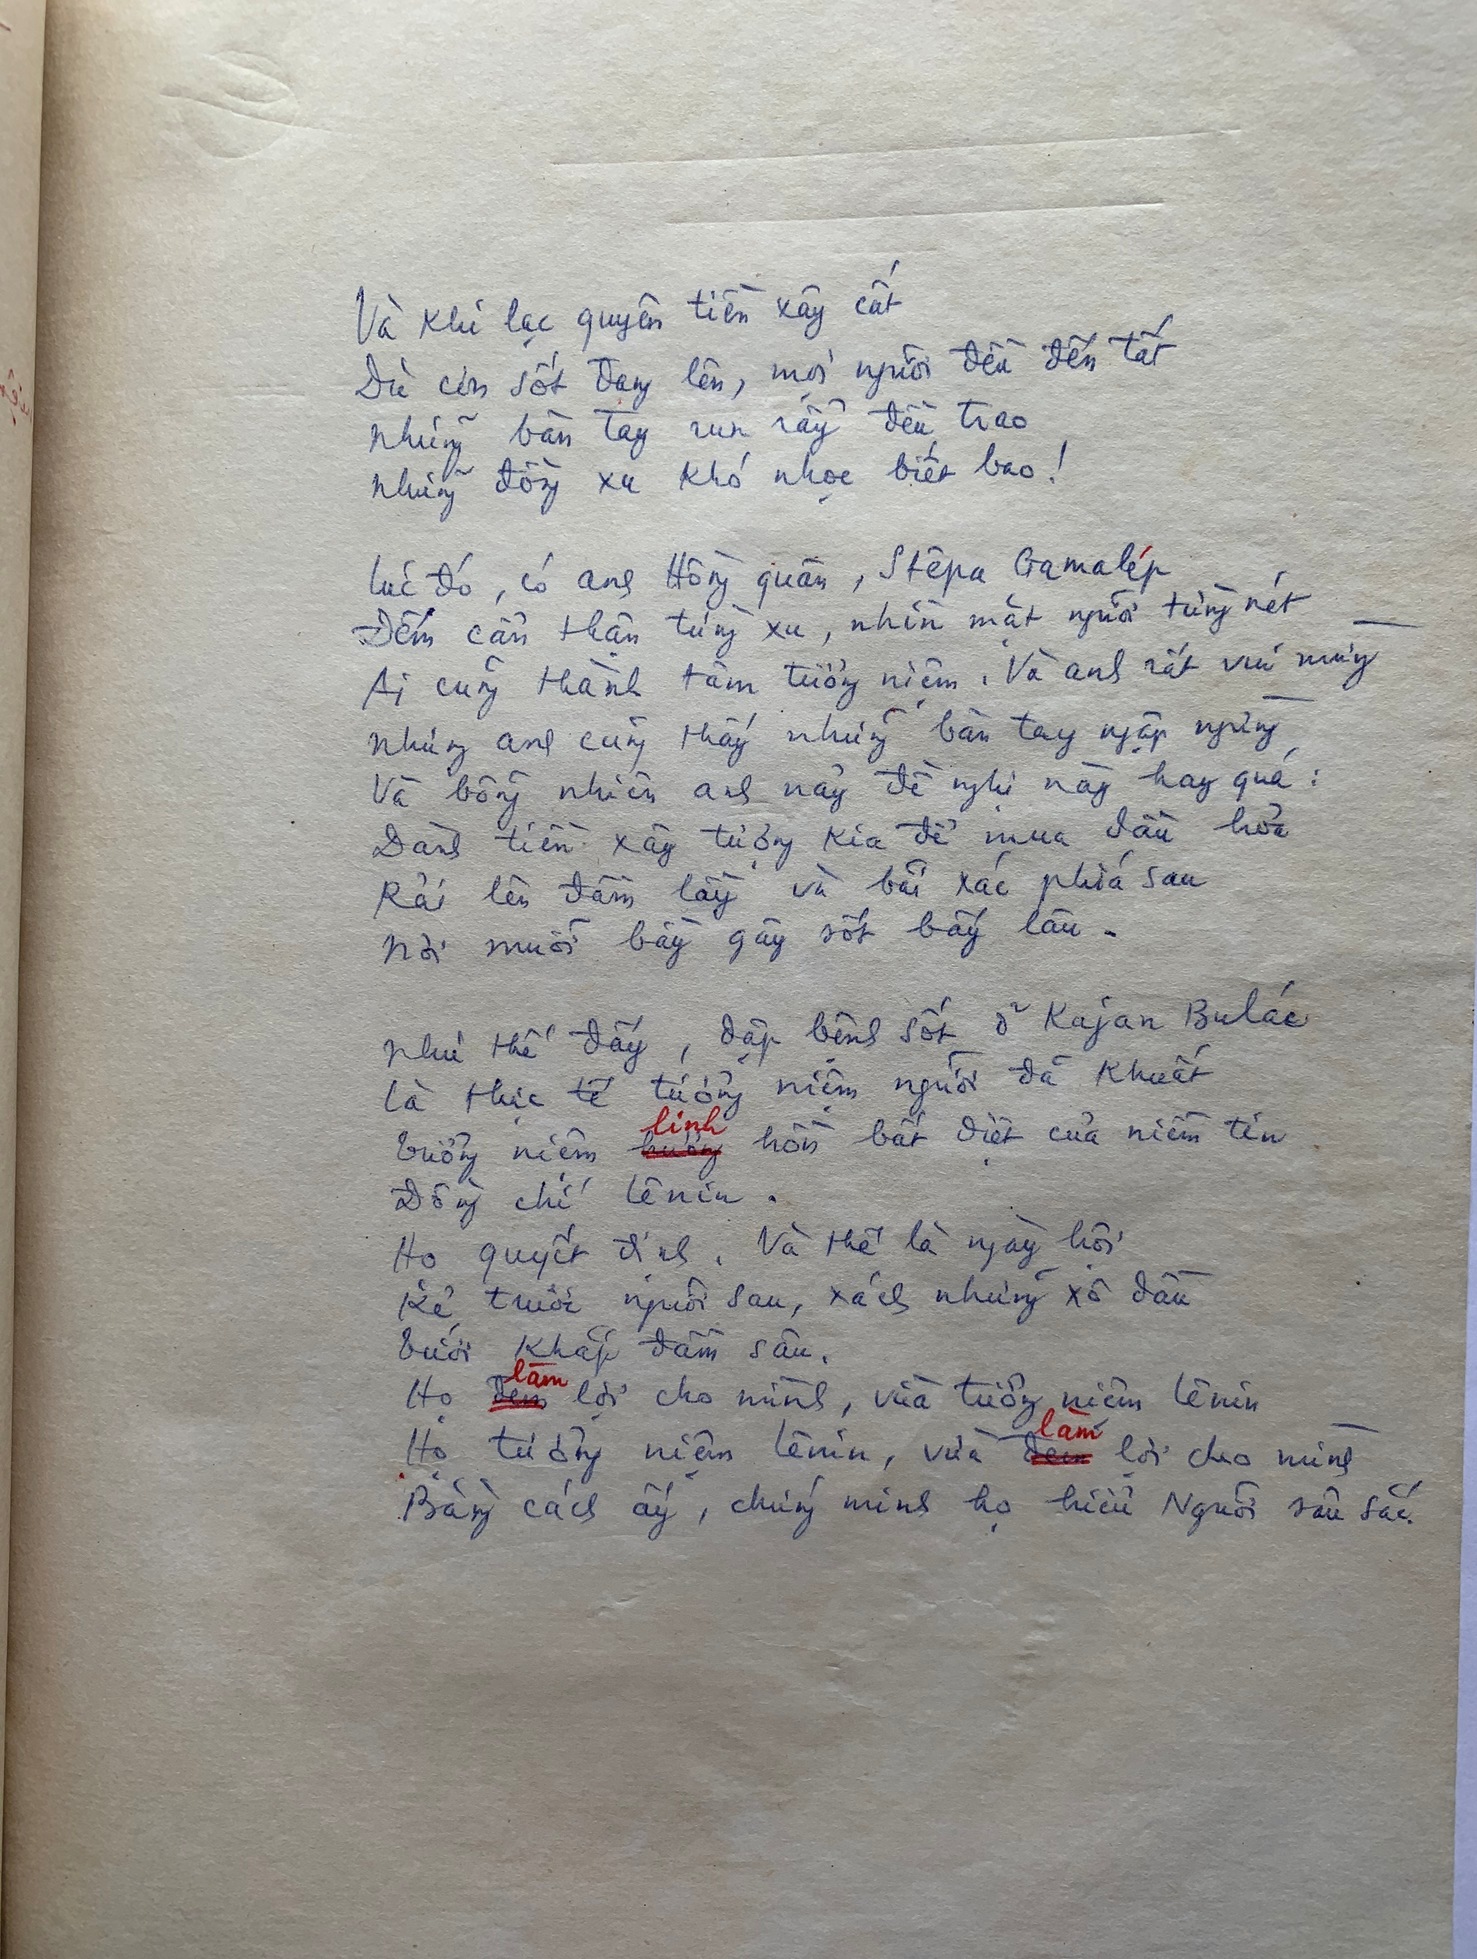 Và khi lạc quyên tiền xây cất
Dù cơn sốt đang lên, mọi người đều đến tất
Những bàn tay run rẩy đều trao
Những đồng xu khó nhọc biết bao!
Lúc đó, có anh Hồng quân, Stêpa Gamalép
Đếm cẩn thận từng xu, nhìn mặt người từng nét
Ai cũng thành tâm tưởng niệm. Và anh rất vui mừng
Nhưng anh cũng thấy những bàn tay ngập ngừng
Và bỗng nhiên anh nảy đề nghị này hay quá:
Dành tiền xây tượng kia để mua dầu hỏa
Rải lên đầm lầy và bãi xác phía sau
Nơi muỗi bầy gây sốt bấy lâu.
Như thế đấy, dập bệnh sốt ở Kajan Bulác
Là thực tế tưởng niệm người đã khuất
Tưởng niệm hương linh hồn bất diệt của niềm tin
Đồng chí Lênin.
Họ quyết định. Và thế là ngày hội
Kẻ trước người sau, xách những xô dầu
Tưới khắp đầm sâu.
Họ đem làm lợi cho mình, vừa tưởng niệm Lênin
Họ tưởng niệm Lênin, vừa đem làm lợi cho mình
Bằng cách ấy, chứng minh họ hiểu Người sâu sắc.